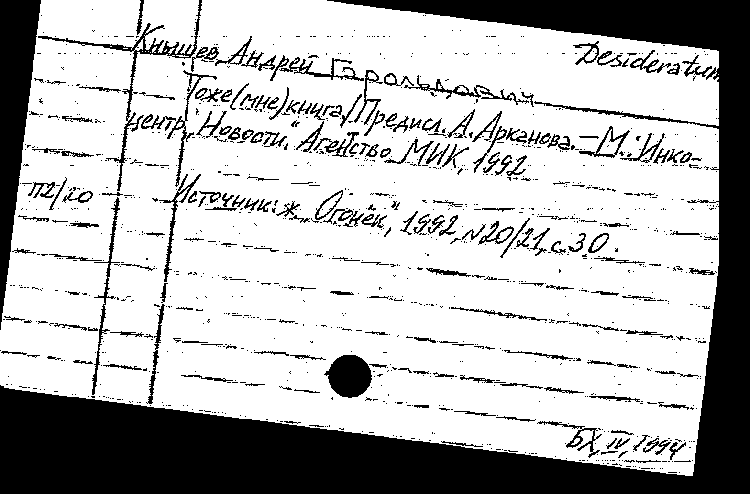 Desideratum
Кнышев, Андрей Гарольдович
Тоже(мне)книга/Предисл. А. Арканова. – М.: Инко-
центр, "Новости." Агентство МИК, 1992
п2/20
Источник: ж. "Огонёк", 1992, N20/21, с. 30.
БХ, IV, 1994